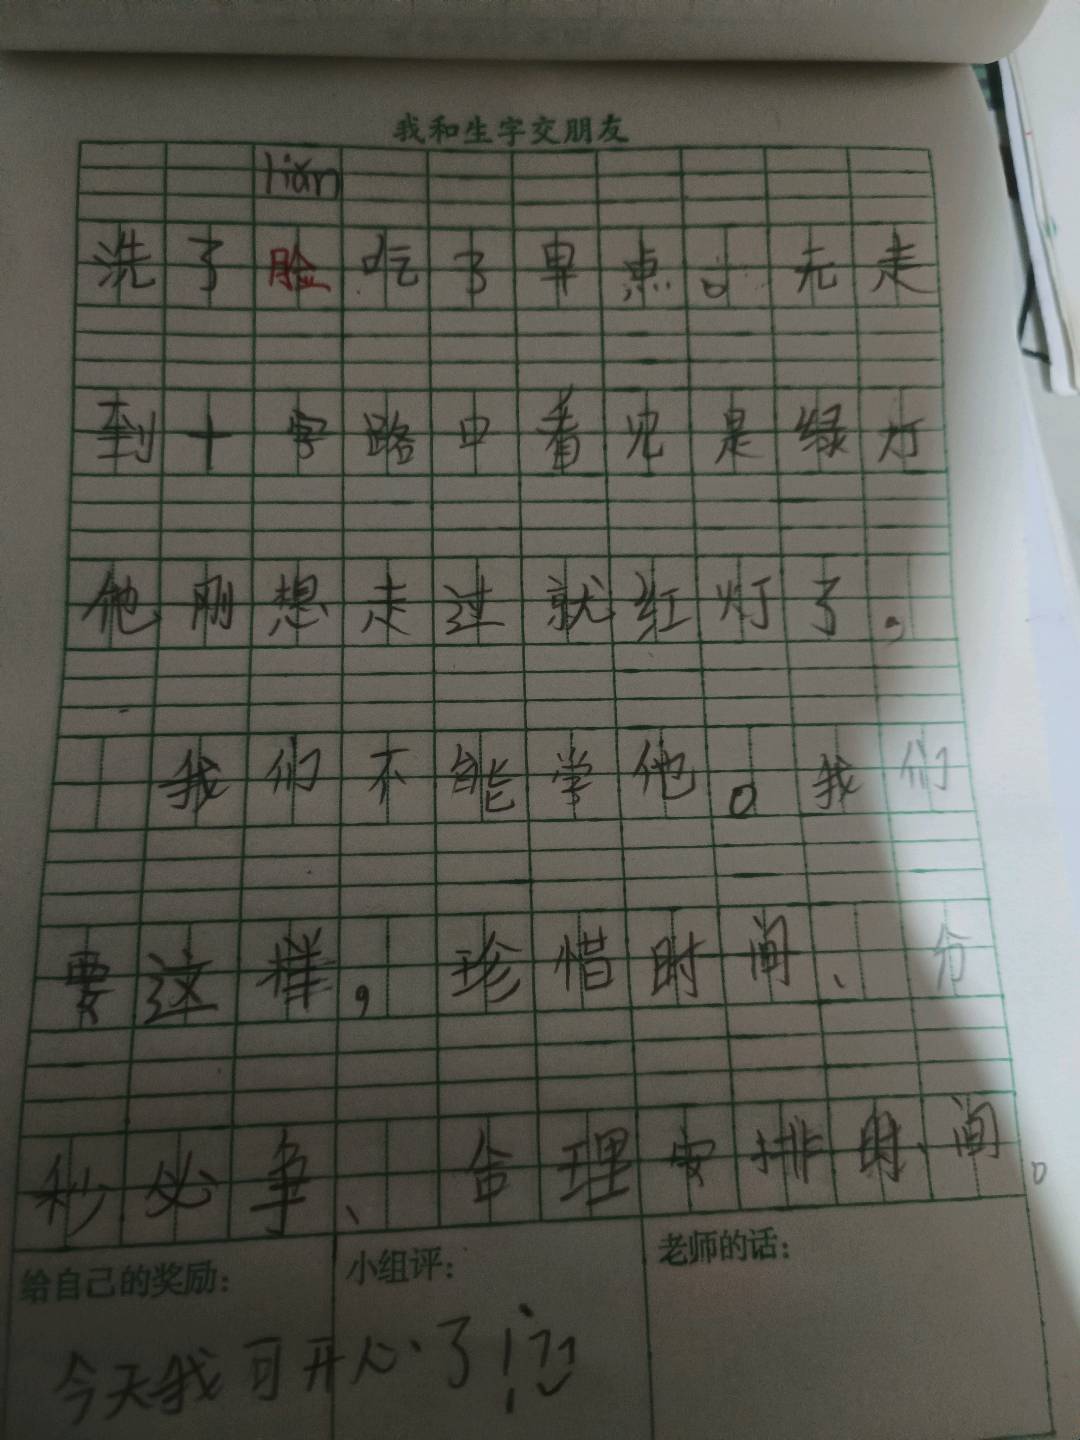 我和生字交朋友
liǎn
洗了脸吃了早点。元走
到十字路口看见是绿灯
他刚想走过就红灯了，
我们不能学他。我们
要这样，珍惜时间、分
秒必争、合理安排时间。
给自己的奖励：
小组评：
老师的话：
今天我可开心了！